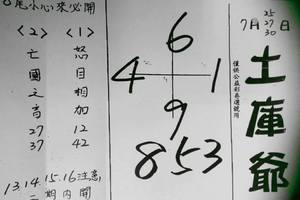 尾小心來必開
<2> <1>
亡國之音
27
37
怒目相加
12
42
13.14.15.16注意
二期內開
6
4 1
9
853
僅供公益彩券選號用
7月25 27 30日
土庫爺